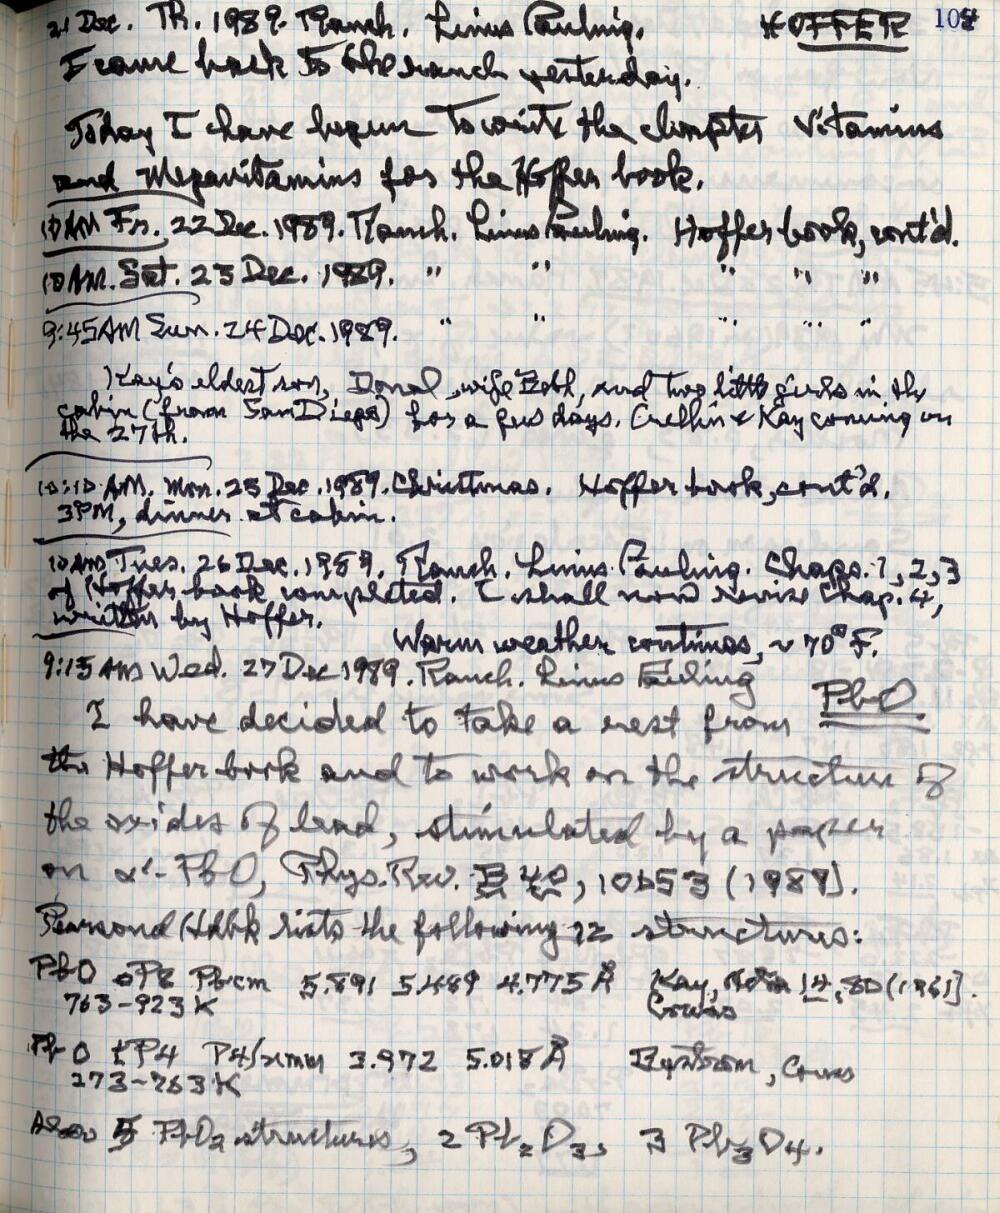 21 Dec. Th. 1989. Ranch. Linus Pauling. HOFFER 108
I came back to the ranch yesterday.
Today I have begun to write the chapter Vitamins
and Megavitamins for the Hoffer book.
10 AM Fri. 22 Dec. 1989. Ranch. Linus Pauling. Hoffer book, cont'd.
10 AM. Sat. 23 Dec. 1989. " " " " "
9:45 AM Sun. 24 Dec. 1989. " " " " "
Kay's eldest son, Donal, wife Beth, and two little girls in the
cabin (from San Diego) for a few days. Crellin & Kay coming on
the 27th.
10:10 AM. Mon. 25 Dec. 1989. Christmas. Hoffer book, cont'd.
3PM, dinner at cabin.
10 AM Tues. 26 Dec. 1989. Ranch. Linus Pauling. Chaps. 1, 2, 3
of Hoffer book completed. I shall now revise Chap. 4,
written by Hoffer.
Warm weather continues, ~ 70° F.
9:15 AM Wed. 27 Dec 1989. Ranch. Linus Pauling
I have decided to take a rest from PbO
the Hoffer book and to work on the structure of
the oxides of lead, stimulated by a paper
on α'-PbO, Phys. Rev. B 40, 10653 (1989).
Pearson Hdbk lists the following 12 structures:
PbO oP8 Pbcm 5.891 5.489 4.775 Å Kay, Acta 14, 80 (1961).
763-923 K
PbO tP4 P4/nmm 3.972 5.018 Å Byström,
273-763 K
Also 5 PbO2 structures, 2 Pb2O3, 3 Pb3O4.